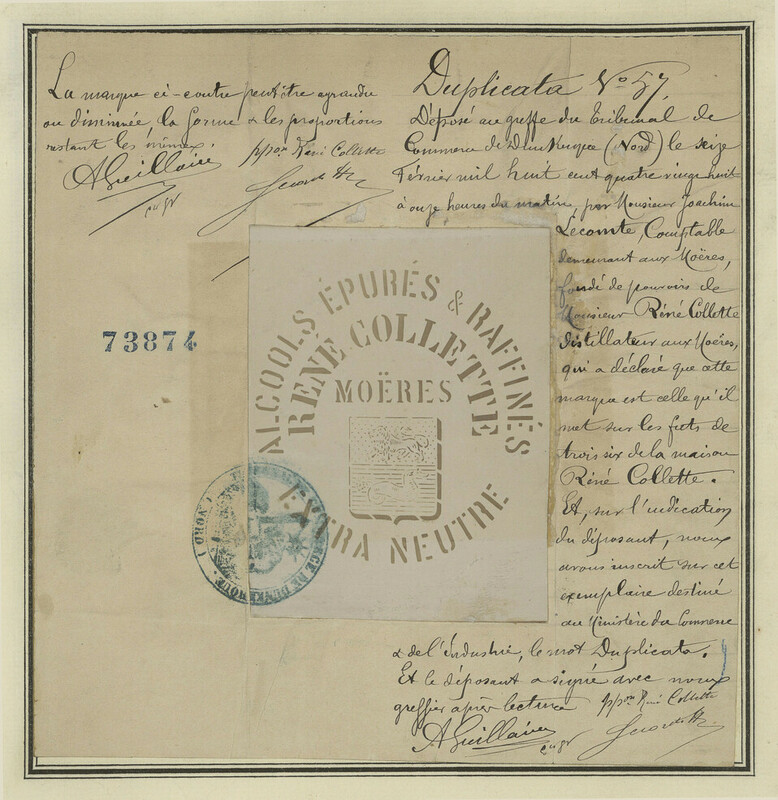 La marque ci-contre peut être agrandie
ou diminuée la forme & les proportions
restant les mêmes.
A Guillain p/pon René Collette
cu gr
73874
Duplicata No 57
Déposé au greffe du Tribunal de
Commerce de Dunkerque (Nord) le seize
Février mil huit cent quatre vingt huit
à onze heures du matin, par Monsieur Joachim
Lecomte, Comptable
demeurant aux Moëres,
fondé de pouvoirs de
Monsieur Réné Collette
distillateur aux Moëres,
qui a déclaré que cette
marque est celle qu'il
met sur les futs de
trois six de la maison
Réné Collette.
Et, sur l'indication
du déposant, nous
avons inscrit sur cet
exemplaire destiné
au Ministère du Commerce
& de l'Industrie, le mot Duplicata.
Et le déposant a signé avec nous
greffier après lecture p/pon René Collette
A Guillain
cu gr
ALCOOLS ÉPURÉS & RAFFINÉS
RENÉ COLLETTE
MOËRES
EXTRA NEUTRE
DE DUNKERQUE
(NORD)